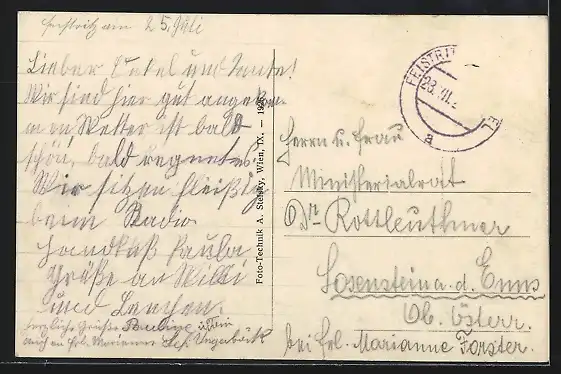 Feistritz am 25. Juli
Lieber Onkel und Tante!
Wir sind hier gut angekom-
men, Wetter ist bald
schön, bald regnet es.
Wir sitzen fleißig
beim Radio
Handkuß Paula
Grüße an Willi
und
herzliche Grüße Pauline
auch an Frl. Marianne
Foto-Technik A. Stefsky, Wien, IX. —
FEISTRIT
a
Herrn u. Frau
Ministerialrat
Dr Rottleuthner
Losenstein a. d. Enns
Ob. Österr.
bei Frl. Marianne Forster.